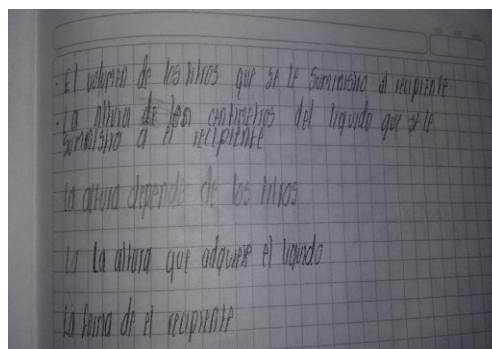 · El volumen de los litros que se le suministro al recipiente
· La altura de los centimetros del liquido que se le
suministro a el recipiente
la altura depende de los litros
la La altura que adquiere el liquido
La forma de el recipiente